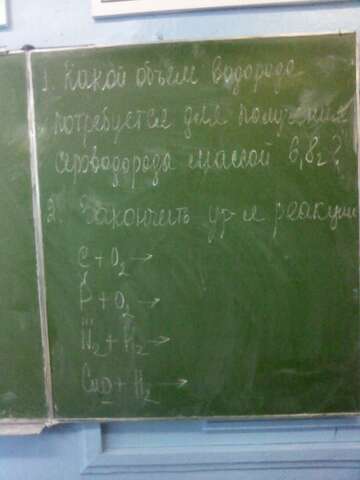 1. Какой объём водорода
потребуется для получения
сероводорода массой 6,8г?
2. Закончить ур-я реакции
C + O2 →
P + O2 →
N2 + H2 →
CuO + H2 →